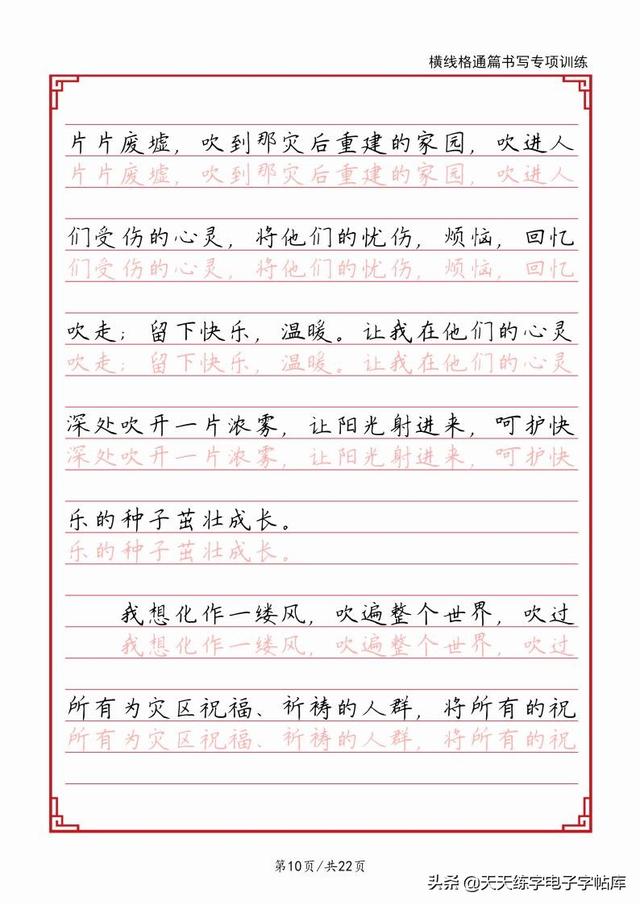 横线格通篇书写专项训练
片片废墟，吹到那灾后重建的家园，吹进人
片片废墟，吹到那灾后重建的家园，吹进人
们受伤的心灵，将他们的忧伤，烦恼，回忆
们受伤的心灵，将他们的忧伤，烦恼，回忆
吹走；留下快乐，温暖。让我在他们的心灵
吹走；留下快乐，温暖。让我在他们的心灵
深处吹开一片浓雾，让阳光射进来，呵护快
深处吹开一片浓雾，让阳光射进来，呵护快
乐的种子茁壮成长。
乐的种子茁壮成长。
我想化作一缕风，吹遍整个世界，吹过
我想化作一缕风，吹遍整个世界，吹过
所有为灾区祝福、祈祷的人群，将所有的祝
所有为灾区祝福、祈祷的人群，将所有的祝
第10页/共22页
头条 @天天练字电子字帖库